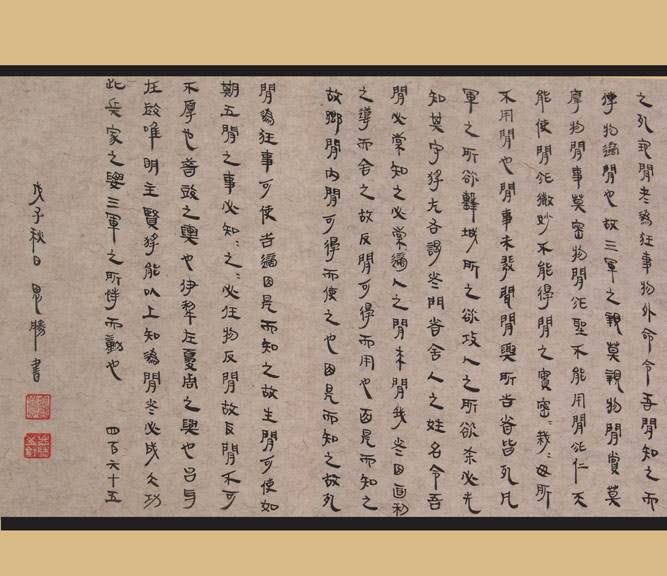 之死閒者為狂事於外令吾閒知之而
傳於適閒也故三軍之親莫親於閒賞莫
厚於閒事莫密於閒非聖不能用閒非仁不
能使閒非微妙不能得閒之實密=哉=毋所
不用閒也閒事未發聞閒與所告者皆死凡
軍之所欲擊城所之欲攻人之所欲殺必先
知其守將左右謁者門者舍人之姓名令吾
閒必索知之必索適人之閒來閒我者因而利
之導而舍之故反閒可得而用也因是而知之
故鄉閒內閒可得而使之也因是而知之故死
閒為狂事可使告適因是而知之故生閒可使如
期五閒之事必知=之=必在於反閒故反閒不可
不厚也昔殷之興也伊摯在夏周之興也呂牙
在殷唯明主賢將能以上知為閒者必成大功
此兵家之要三軍之所恃而動也 四百六十五
戊子秋日勝書